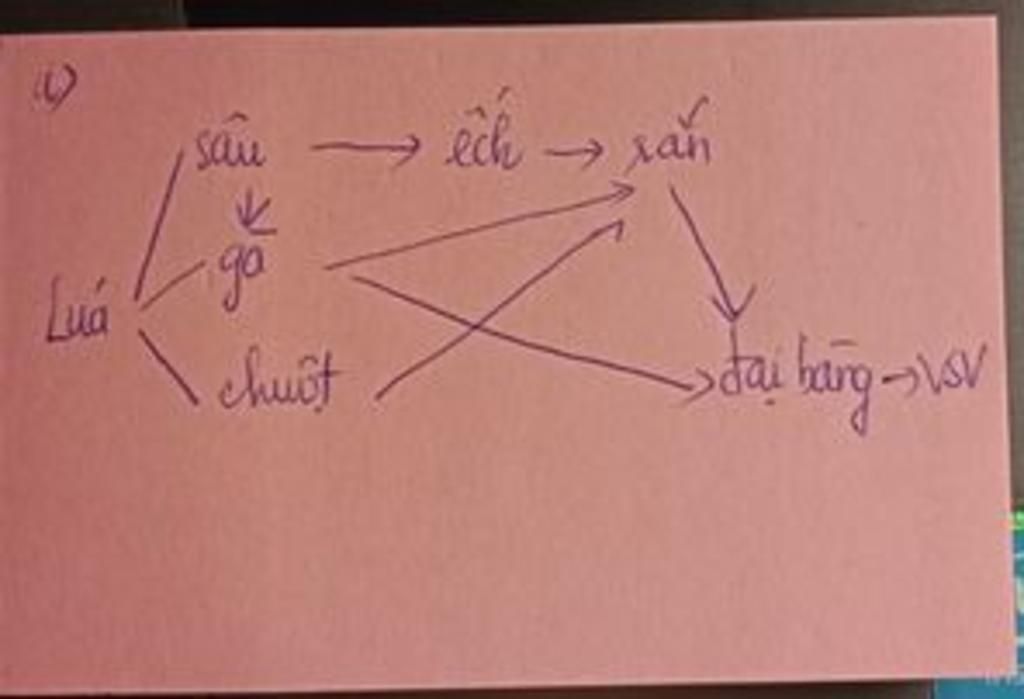 1)
sâu → ếch → rắn
gà
Luá
chuột
đại bàng → VSV